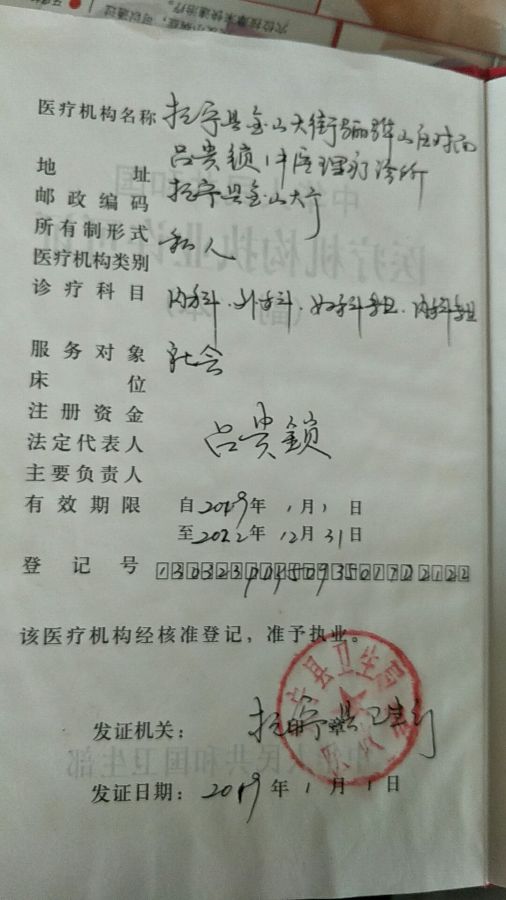 医疗机构名称 抚宁县金山大街骊骅山庄对面
吕贵锁中医理疗诊所
地 址 抚宁县金山大街
邮政编码
所有制形式 私人
医疗机构类别
诊疗科目 内科.外科.妇科专业.内科专业
服务对象 社会
床 位
注册资金
法定代表人 吕贵鎖
主要负责人
有效期限 自2019年1月1日
至2022年12月31日
登记号
该医疗机构经核准登记,准予执业。
发证机关: 抚宁县卫生局
发证日期: 2019年1月1日